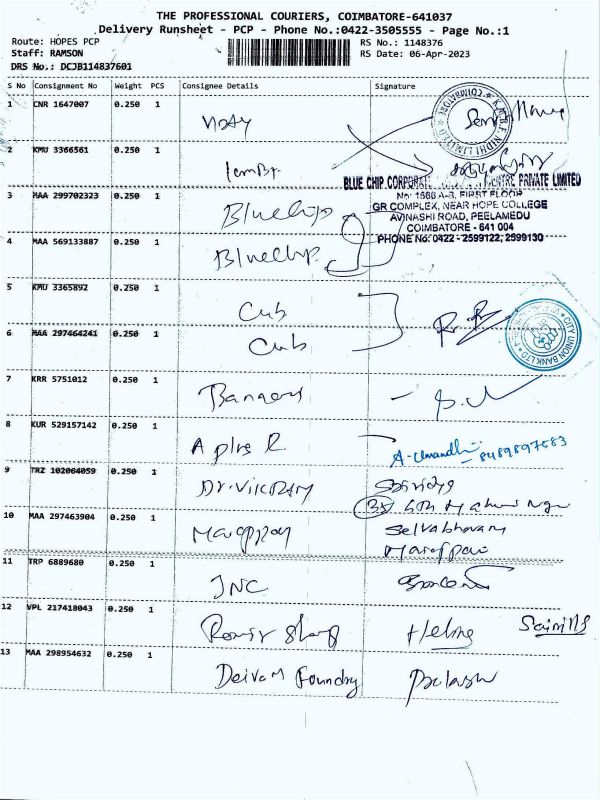 THE PROFESSIONAL COURIERS, COIMBATORE-641037
Delivery Runsheet - PCP - Phone No.:0422-3505555 - Page No.:1
Route: HOPES PCP
RS No.: 1148376
Staff: RAMSON
RS Date: 06-Apr-2023
DRS No.: DCJB114837601
S No Consignment No Weight PCS Consignee Details Signature
1 CNR 1647007 0.250 1
2 KMU 3366561 0.250 1
BLUE CHIP CORPORATE CENTRE PRIVATE LIMITED
No: 1568 A-3, FIRST FLOOR
3 MAA 299702323 0.250 1 Bluechip
GR COMPLEX, NEAR HOPE COLLEGE
AVINASHI ROAD, PEELAMEDU
COIMBATORE - 641 004
4 MAA 569133887 0.250 1 Bluechip
PHONE No: 0422 - 2599122, 2599130
5 KMU 3365892 0.250 1 Cub
6 MAA 297464241 0.250 1 Cub
CITY UNION BANK LTD
7 KRR 5751012 0.250 1
8 KUR 529157142 0.250 1 A plus R
9 TRZ 102064059 0.250 1 Dr. Vikram
10 MAA 297463904 0.250 1 Marappan
Selvabhavam
Marappan
11 TRP 6889680 0.250 1 JNC
12 VPL 217418043 0.250 1
13 MAA 298954632 0.250 1 Deivam Foundry Prakash